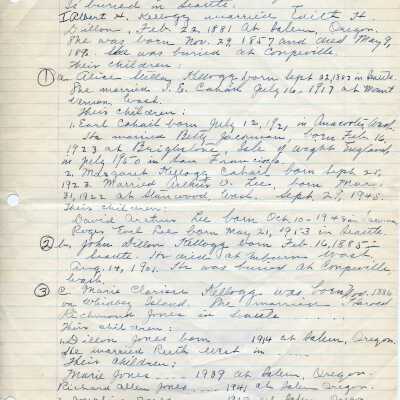 is buried in Seattle.
I Albert H. Kellogg married Edith H.
Dillon, Feb. 22, 1881 At Salem, Oregon.
She was born Nov. 29, 1857 and died May 9,
She was buried at Coupeville.
Their children:
① a. Alice Kellogg born Sept 22, in Seattle.
She married J. E. Cahail July 16, 1917 at Mount
Vernon, Wash.
Their children:
1. Earl Cahail born July 12, 1921 in Anacortes, Wash.
He married Betty born Feb. 16,
1923 at Isle of Wight England
in July 1950 in San Francisco.
2. Margaret Kellogg Cahail born Sept 25,
1923 Married Arthur O. Lee, born Mar.
31, 1922 at Stanwood, Wash. Sept. 29, 1945.
Their children:
David Arthur Lee born Oct. 10 - 1948 in
Roger Earl Lee born May 21, 1953 in Seattle.
② b. John Dillon Kellogg born Feb. 16, 1885 in
Seattle. He died at Auburn Wash.
Aug. 14, 1901. He was buried at Coupeville,
Wash.
③ C Marie Clarissa Kellogg was born 1886
on Whidbey Island. She married
Richmond Jones in Seattle
Their children:
Dillon Jones born 1914 at Salem, Oregon.
He married Ruth West in
Their children:
Marie Jones 1939 at Salem, Oregon.
Richard Allen Jones 1941 at Salem Oregon.
Jones at Salem, Oregon.